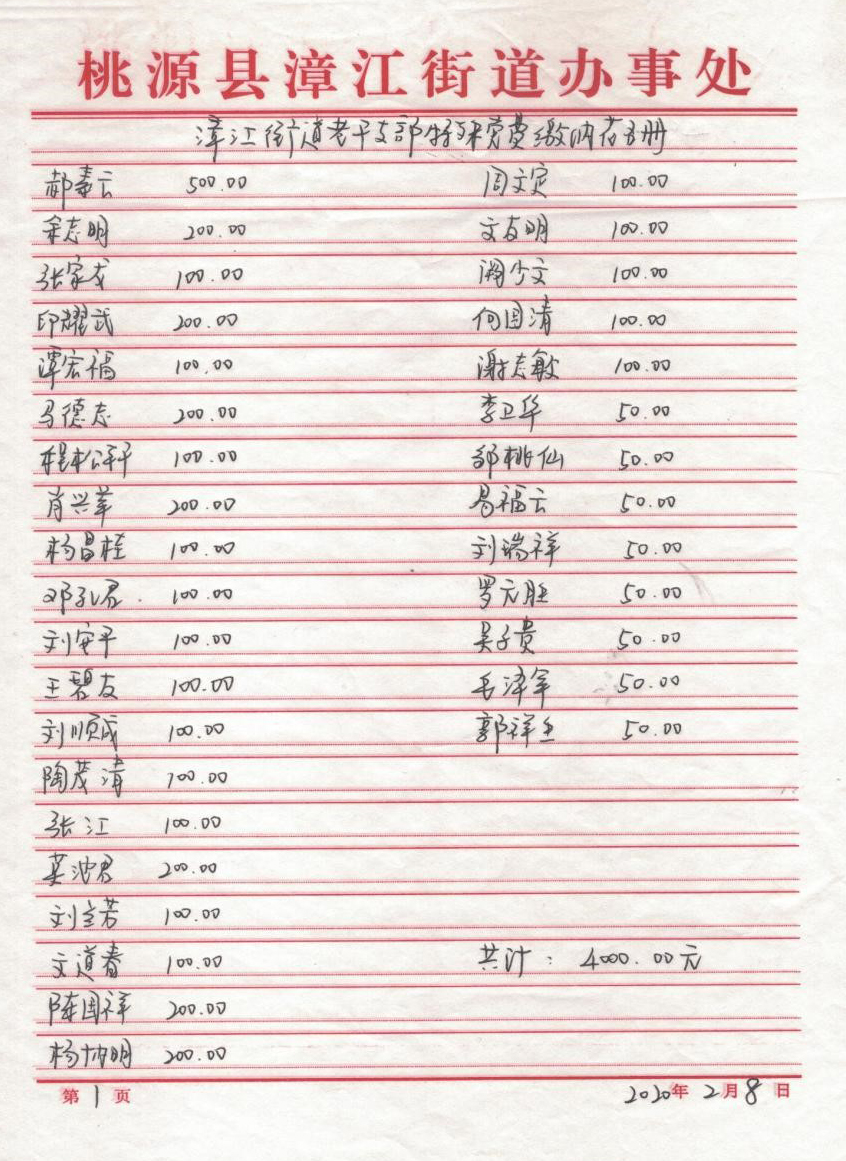 桃源县漳江街道办事处
漳江街道老干支部特殊党费缴纳花名册
郝素云 500.00 周文定 100.00
余志明 200.00 文友明 100.00
张家戈 100.00 阙少文 100.00
印耀武 200.00 何国清 100.00
谭宏福 100.00 谢志敏 100.00
马德志 200.00 李卫华 50.00
程松轩 100.00 邹桃仙 50.00
肖兴华 200.00 易福云 50.00
杨昌桂 100.00 刘瑞祥 50.00
邓孔君 100.00 罗元胜 50.00
刘安平 100.00 吴子贵 50.00
王碧友 100.00 毛泽军 50.00
刘顺成 100.00 郭祥玉 50.00
陶茂清 100.00
张江 100.00
莫波君 200.00
刘立芳 100.00
文道春 100.00 共计：4000.00元
陈国祥 200.00
杨协明 200.00
第1页 2020年2月8日